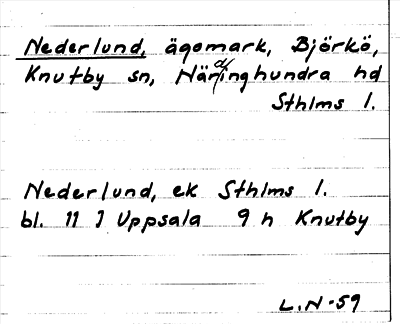 Nederlund, ägomark, Björkö,
Knutby sn, Närdinghundra hd
Sthlms l.
Nederlund, ek Sthlms l.
bl. 11 I Uppsala 9 h Knutby
L.N-59